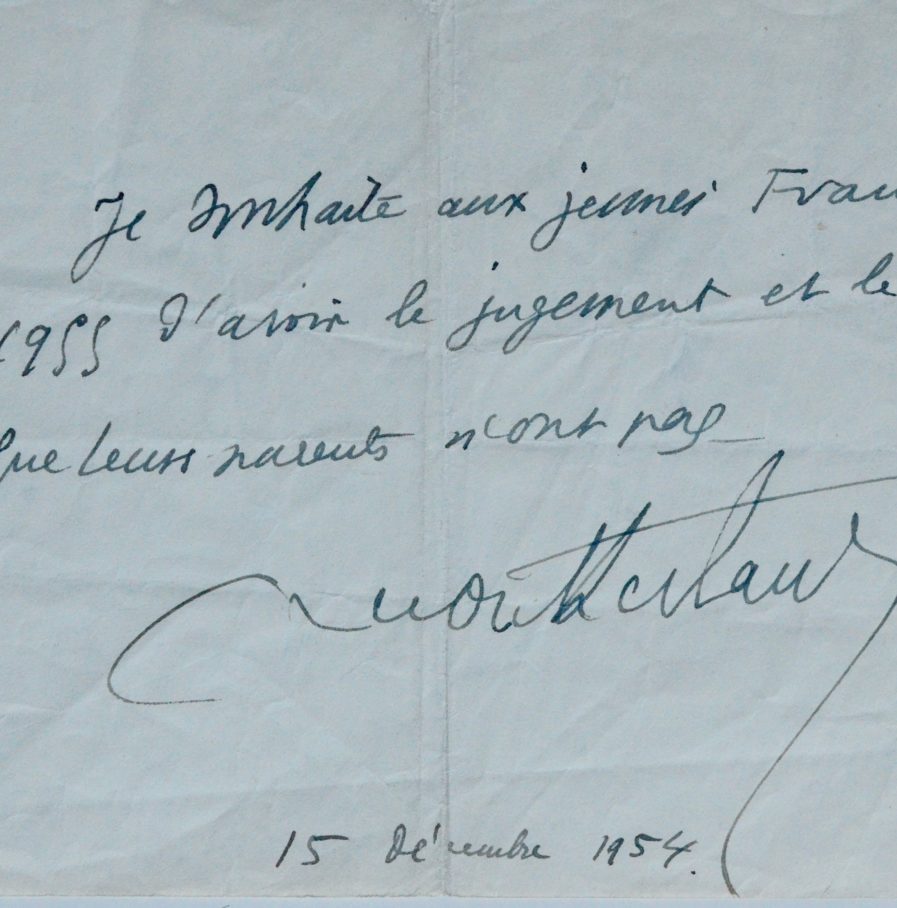 Je souhaite aux jeunes Fran
1955 d'avoir le jugement et le
que leurs parents n'ont pas_
Montherlant
15 Décembre 1954.